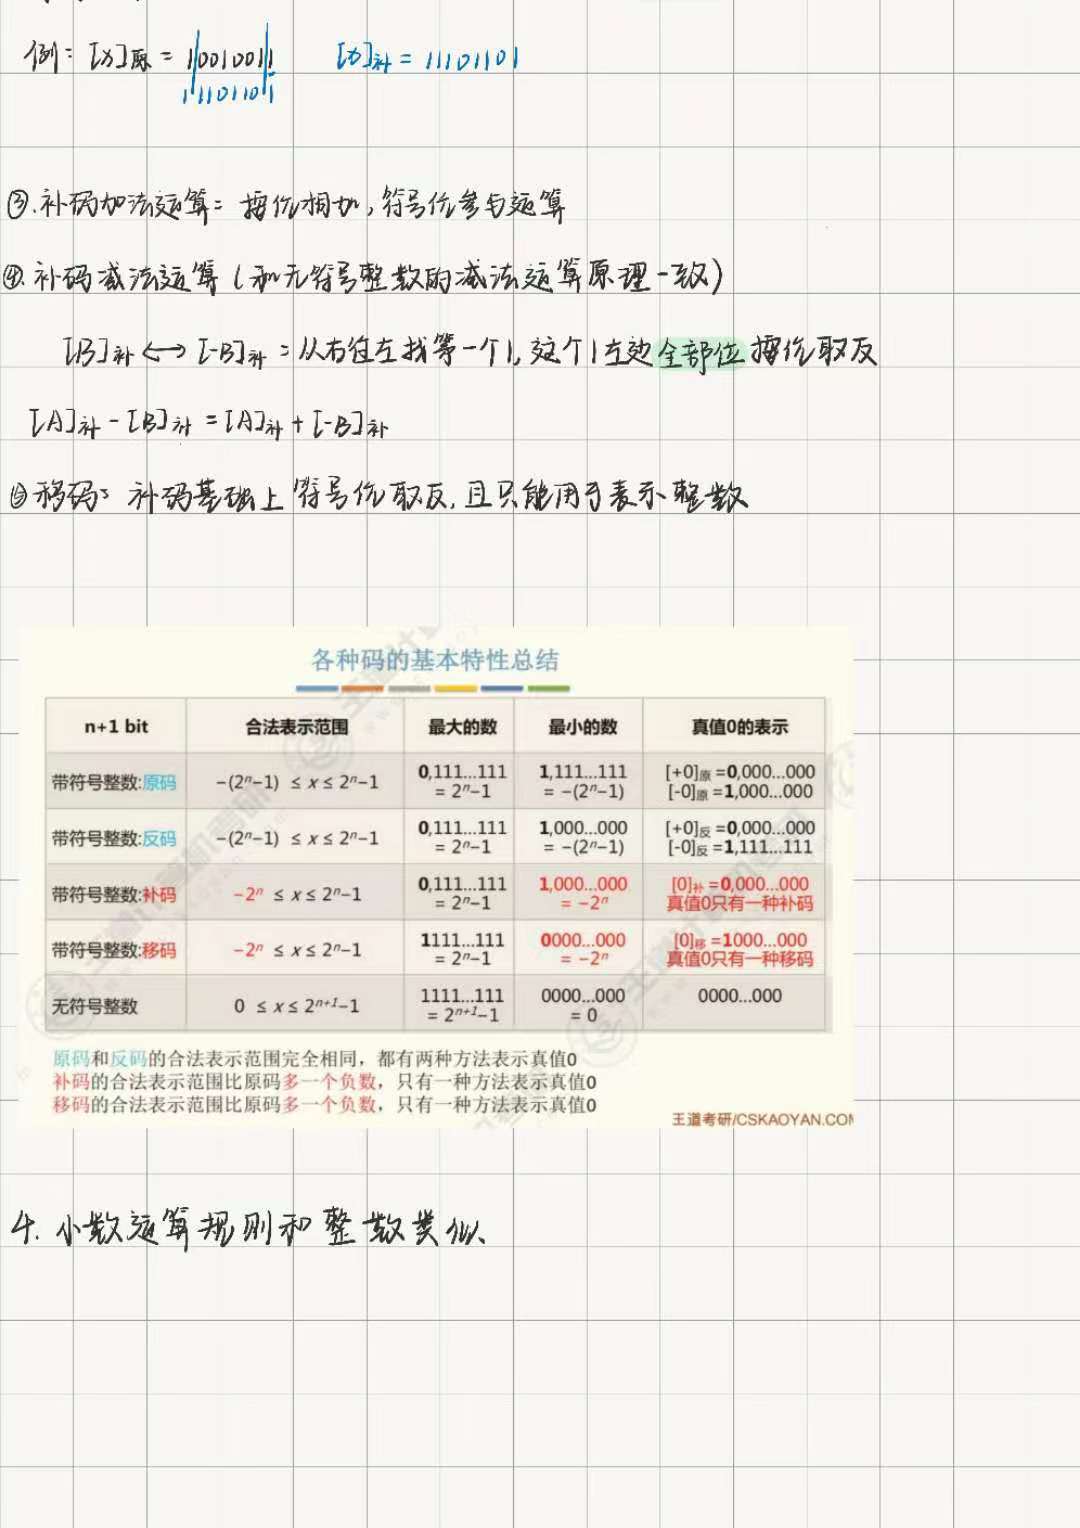 例：[x]原 = 10010011 [x]补 = 11101101
11101101
③.补码加法运算：按位相加，符号位参与运算
④.补码减法运算（和无符号整数的减法运算原理一致）
[B]补 ↔ [-B]补：从右往左找第一个1，这个1左边全部位按位取反
[A]补 - [B]补 = [A]补 + [-B]补
移码：补码基础上符号位取反，且只能用于表示整数
各种码的基本特性总结
n+1 bit 合法表示范围 最大的数 最小的数 真值0的表示
带符号整数:原码 -(2ⁿ-1) ≤ x ≤ 2ⁿ-1 0,111...111 = 2ⁿ-1 1,111...111 = -(2ⁿ-1) [+0]原=0,000...000 [-0]原=1,000...000
带符号整数:反码 -(2ⁿ-1) ≤ x ≤ 2ⁿ-1 0,111...111 = 2ⁿ-1 1,000...000 = -(2ⁿ-1) [+0]反=0,000...000 [-0]反=1,111...111
带符号整数:补码 -2ⁿ ≤ x ≤ 2ⁿ-1 0,111...111 = 2ⁿ-1 1,000...000 = -2ⁿ [0]补=0,000...000 真值0只有一种补码
带符号整数:移码 -2ⁿ ≤ x ≤ 2ⁿ-1 1111...111 = 2ⁿ-1 0000...000 = -2ⁿ [0]移=1000...000 真值0只有一种移码
无符号整数 0 ≤ x ≤ 2ⁿ⁺¹-1 1111...111 = 2ⁿ⁺¹-1 0000...000 = 0 0000...000
原码和反码的合法表示范围完全相同，都有两种方法表示真值0
补码的合法表示范围比原码多一个负数，只有一种方法表示真值0
移码的合法表示范围比原码多一个负数，只有一种方法表示真值0
王道考研/CSKAOYAN.COM
4. 小数运算规则和整数类似、